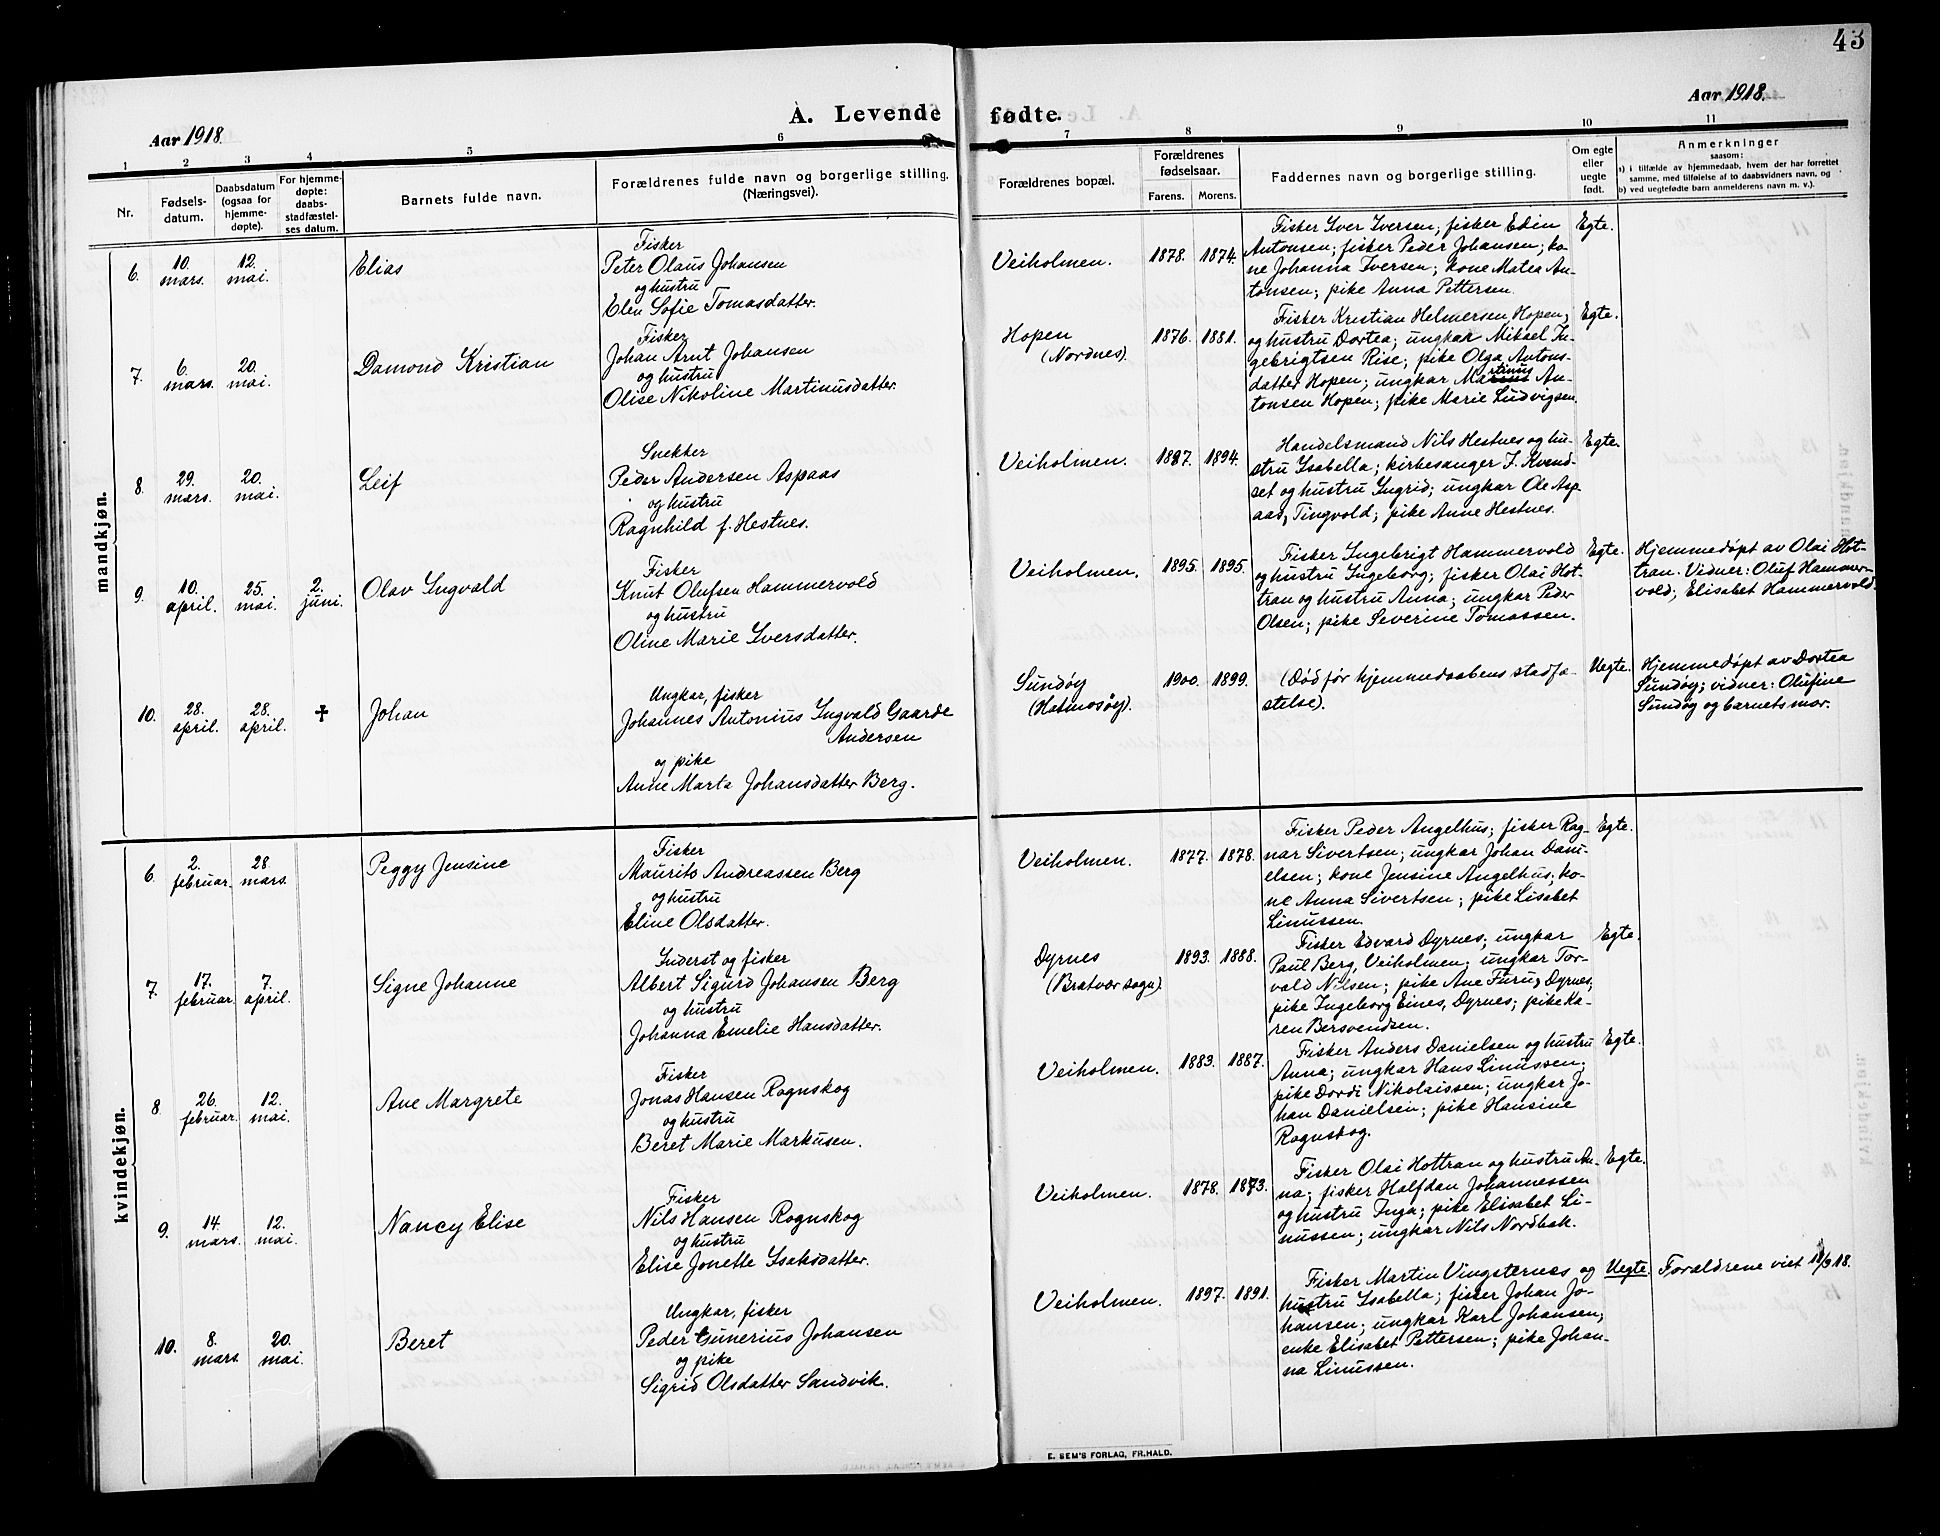 43
Aar 1918.
A. Levende fødte.
Aar 1918.
1 2 3 4 5 6 7 8 9 10 11
Nr.
Fødsels-
datum.
Daabsdatum
(ogsaa for
hjemme-
døpte).
For hjemme-
døpte:
daabs-
stadfæstel-
ses datum.
Barnets fulde navn.
Forældrenes fulde navn og borgerlige stilling.
(Næringsvei).
Forældrenes bopæl.
Forældrenes
fødselsaar.
Farens. Morens.
Faddernes navn og borgerlige stilling.
Om egte
eller
uegte
født.
Anmerkninger
saasom:
a) i tilfælde av hjemmedaab, hvem der har forrettet
samme, med tilføielse af to daabsvidners navn, og
b) ved uegtefødte barn anmelderens navn m. v.).
mandkjøn.
6. 10.
mars.
12.
mai.
Elias
Fisker
Peter Olaus Johansen
og hustru
Elen Sofie Tomasdatter.
Veiholmen. 1878. 1874.
Fisker Iver Iversen; fisker Edin
Antonsen; fisker Peder Johansen; ko-
ne Johanna Iversen; kone Matea An-
tonsen; pike Anna Pettersen.
Egte.
7. 6.
mars.
20.
mai.
Damond Kristian
Fisker
Johan Arnt Johansen
og hustru
Olise Nikoline Martinusdatter.
Hopen
(Nordnes).
1876. 1881.
Fisker Kristian Helmersen Hopen;
og hustru Dortea; ungkar Mikael In-
gebrigtsen Rise; pike Olga Antons-
datter Hopen; ungkar Martinus An-
tonsen Hopen; pike Marie Ludvigsen.
Egte.
8. 29.
mars.
20.
mai.
Leif
Snekker
Peder Andersen Aspaas
og hustru
Ragnhild f. Hestnes.
Veiholmen. 1887. 1894.
Handelsmand Nils Hestnes og hu-
stru Isabella; kirkesanger I. Kvend-
set og hustru Ingrid; ungkar Ole Asp-
aas, Tingvold; pike Anne Hestnes.
Egte.
9. 10.
april.
25.
mai.
2.
juni.
Olav Ingvald
Fisker
Knut Olufsen Hammervold
og hustru
Oline Marie Iversdatter.
Veiholmen. 1895. 1895.
Fisker Ingebrigt Hammervold
og hustru Ingeborg; fisker Olai Hot-
tran og hustru Anna; ungkar Peder
Olsen; pike Severine Tomassen.
Egte.
Hjemmedøpt av Olai Hot-
tran. Vidner: Oluf Hammer-
vold; Elisabet Hammervold.
10. 28.
april.
28.
april.
✝
Johan
Ungkar, fisker
Johannes Antonius Ingvald Gaarde
Andersen
og pike
Anne Marta Johansdatter Berg.
Sundøy
(Hatmosøy).
1900. 1899.
(Død før hjemmedaabens stadfæ-
stelse).
Uegte.
Hjemmedøpt av Dortea
Sundøy; vidner: Olufine
Sundøy og barnets mor.
kvindekjøn.
6. 2.
februar.
28.
mars.
Peggy Jensine
Fisker
Maurits Andreassen Berg
og hustru
Eline Olsdatter.
Veiholmen. 1877. 1878.
Fisker Peder Angelhus; fisker Rag-
nar Sivertsen; ungkar Johan Dani-
elsen; kone Jensine Angelhus; ko-
ne Anna Sivertsen; pike Lisabet
Linussen.
Egte.
7. 17.
februar.
7.
april.
Signe Johanne
Inderst og fisker
Albert Sigurd Johansen Berg
og hustru
Johanna Emelie Hansdatter.
Dyrnes
(Bratvær sogn)
1893. 1888.
Fisker Edvard Dyrnes; ungkar
Paul Berg, Veiholmen; ungkar Tor-
vald Nilsen; pike Ane Furu, Dyrnes;
pike Ingeborg Eines, Dyrnes; pike Ka-
ren Bersvendsen.
Egte.
8. 26.
februar.
12.
mai.
Ane Margrete
Fisker
Jonas Hansen Rognskog
og hustru
Beret Marie Markusen.
Veiholmen. 1883. 1887.
Fisker Anders Danielsen og hustru
Anna; ungkar Hans Linussen;
pike Dordi Nikolaissen; ungkar Jo-
han Danielsen; pike Hansine
Rognskog.
Egte.
9. 14.
mars.
12.
mai.
Nancy Elise
Fisker
Nils Hansen Rognskog
og hustru
Elise Jonette Isaksdatter.
Veiholmen. 1878. 1873.
Fisker Olai Hottran og hustru An-
na; fisker Halfdan Johannessen
og hustru Inga; pike Elisabet Li-
nussen; ungkar Nils Nordbak.
Egte.
10. 8.
mars.
20.
mai.
Beret
Ungkar, fisker
Peder Gunerius Johansen
og pike
Sigrid Olsdatter Sandvik.
Veiholmen. 1897. 1891.
Fisker Martin Vingsternes og
hustru Isabella; fisker Johan Jo-
hansen; ungkar Karl Johansen;
enke Elisabet Pettersen; pike Johan-
na Linussen.
Uegte.
Forældrene viet
E. SEM'S FORLAG, FR.HALD.